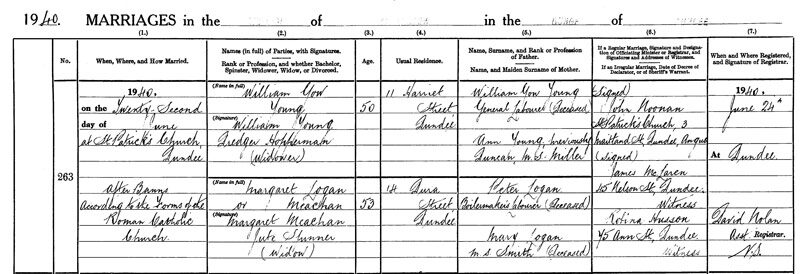 1940. MARRIAGES in the of in the
(1.) (2.) (3.) (4.) (5.) (6.) (7.)
No.
When, Where, and How Married.
Names (in full) of Parties, with Signatures.
Rank or Profession, and whether Bachelor,
Spinster, Widower, Widow, or Divorced.
Age.
Usual Residence.
Name, Surname, and Rank or Profession
of Father.
Name, and Maiden Surname of Mother.
If a Regular Marriage, Signature and Designa-
tion of Officiating Minister or Registrar, and
Signatures and Addresses of Witnesses.
If an Irregular Marriage, Date of Decree of
Declarator, or of Sheriff's Warrant.
When and Where Registered,
and Signature of Registrar.
263
1940.
on the Twenty-Second
day of June
at St Patrick's Church,
Dundee
After Banns
According to the Forms of the
Roman Catholic
Church.
(Name in full) William Gow
Young
(Signature) William Young
Dredger Hopperman
(Widower)
50
11 Harriet
Street
Dundee
William Gow Young
General Labourer (Deceased)
Ann Young, previously
Duncan, m.s. Miller
(Signed)
John Noonan
St Patrick's Church, 3
Maitland St, Dundee, Angus
(Signed)
James McLaren
45 Nelson St, Dundee.
Witness
Robina Husson
45 Ann St, Dundee.
Witness
(Name in full) Margaret Logan
or McAchan
(Signature) Margaret McAchan
Jute Spinner
(Widow)
53
14 Dura
Street
Dundee
Peter Logan
Boilermaker's Labourer (Deceased)
Mary Logan
m.s. Smith (Deceased)
1940.
June 24th
At Dundee.
David Nolan
Asst Registrar.